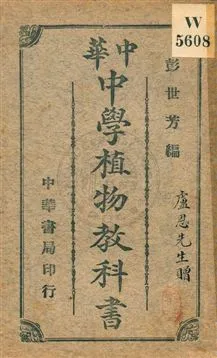 W
5608
中華
中學植物教科書
彭世芳編
中華書局印行
盧恩先生贈